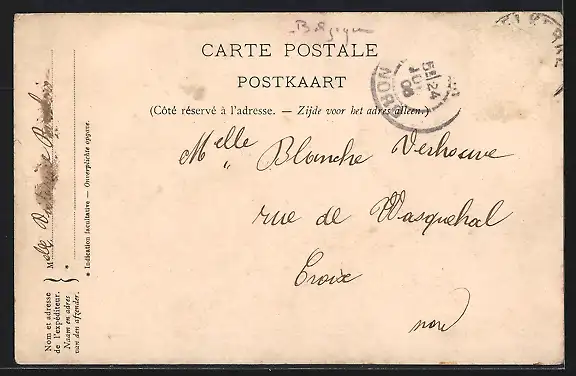 Belgique
CARTE POSTALE
POSTKAART
(Côté réservé à l'adresse. — Zijde voor het adres alleen.)
Melle Blanche Verhouve
rue de Wasquehal
Croix
nord
Nom et adresse
de l'expéditeur.
Naam en adres
van den afzender.
Melle
*
* Indication facultative — Onverplichte opgave.
5 24
08